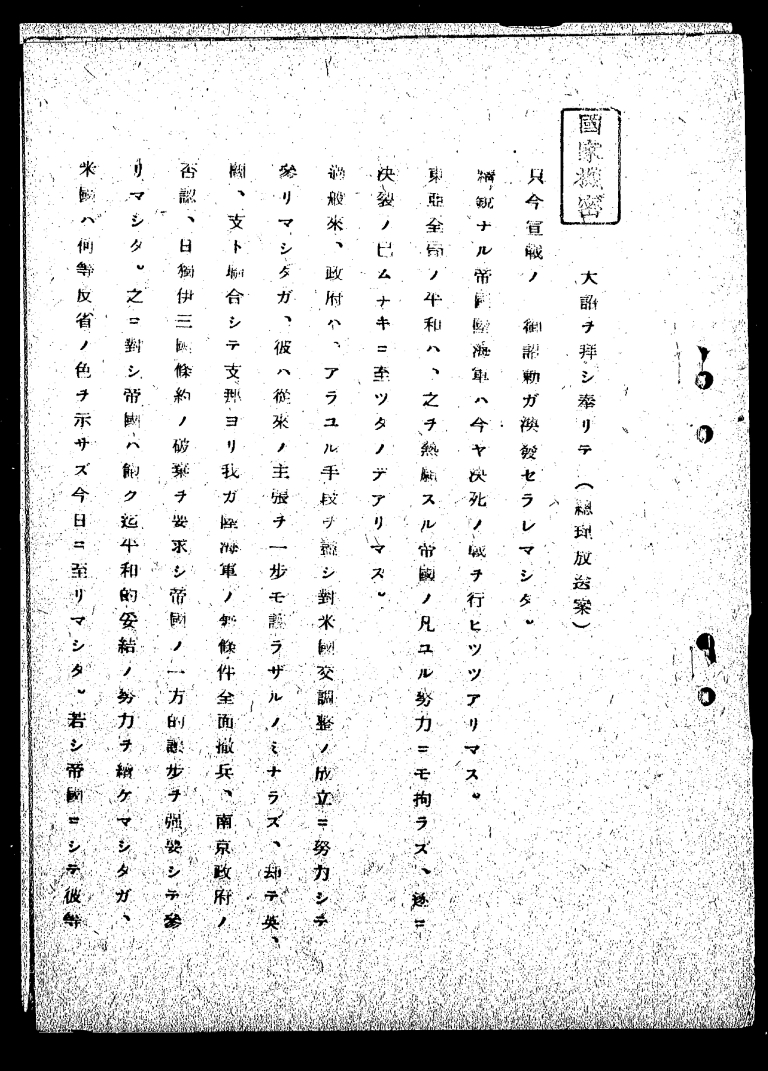 國家機密
大詔ヲ拜シ奉リテ（總理放送案）
只今宣戰ノ 御詔勅ガ渙發セラレマシタ。
精銳ナル帝國陸海軍ハ今ヤ決死ノ戰ヲ行ヒツツアリマス。
東亞全局ノ平和ハ、之ヲ熱願スル帝國ノ凡ユル努力ニモ拘ラズ、遂ニ
決裂ノ已ムナキニ至ツタノデアリマス。
過般來、政府ハ、アラユル手段ヲ盡シ對米國交調整ノ成立ニ努力シテ
參リマシタガ、彼ハ從來ノ主張ヲ一步モ讓ラザルノミナラズ、却テ英、
蘭、支ト聯合シテ支那ヨリ我ガ陸海軍ノ無條件全面撤兵、南京政府ノ
否認、日獨伊三國條約ノ破棄ヲ要求シ帝國ノ一方的讓步ヲ强要シテ參
リマシタ。之ニ對シ帝國ハ飽ク迄平和的妥結ノ努力ヲ續ケマシタガ、
米國ハ何等反省ノ色ヲ示サズ今日ニ至リマシタ。若シ帝國ニシテ彼等